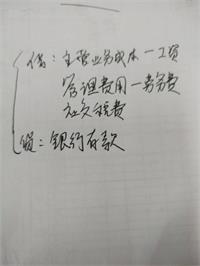 借：主营业务成本一工资
管理费用一劳务费
社交税费
贷：银行存款